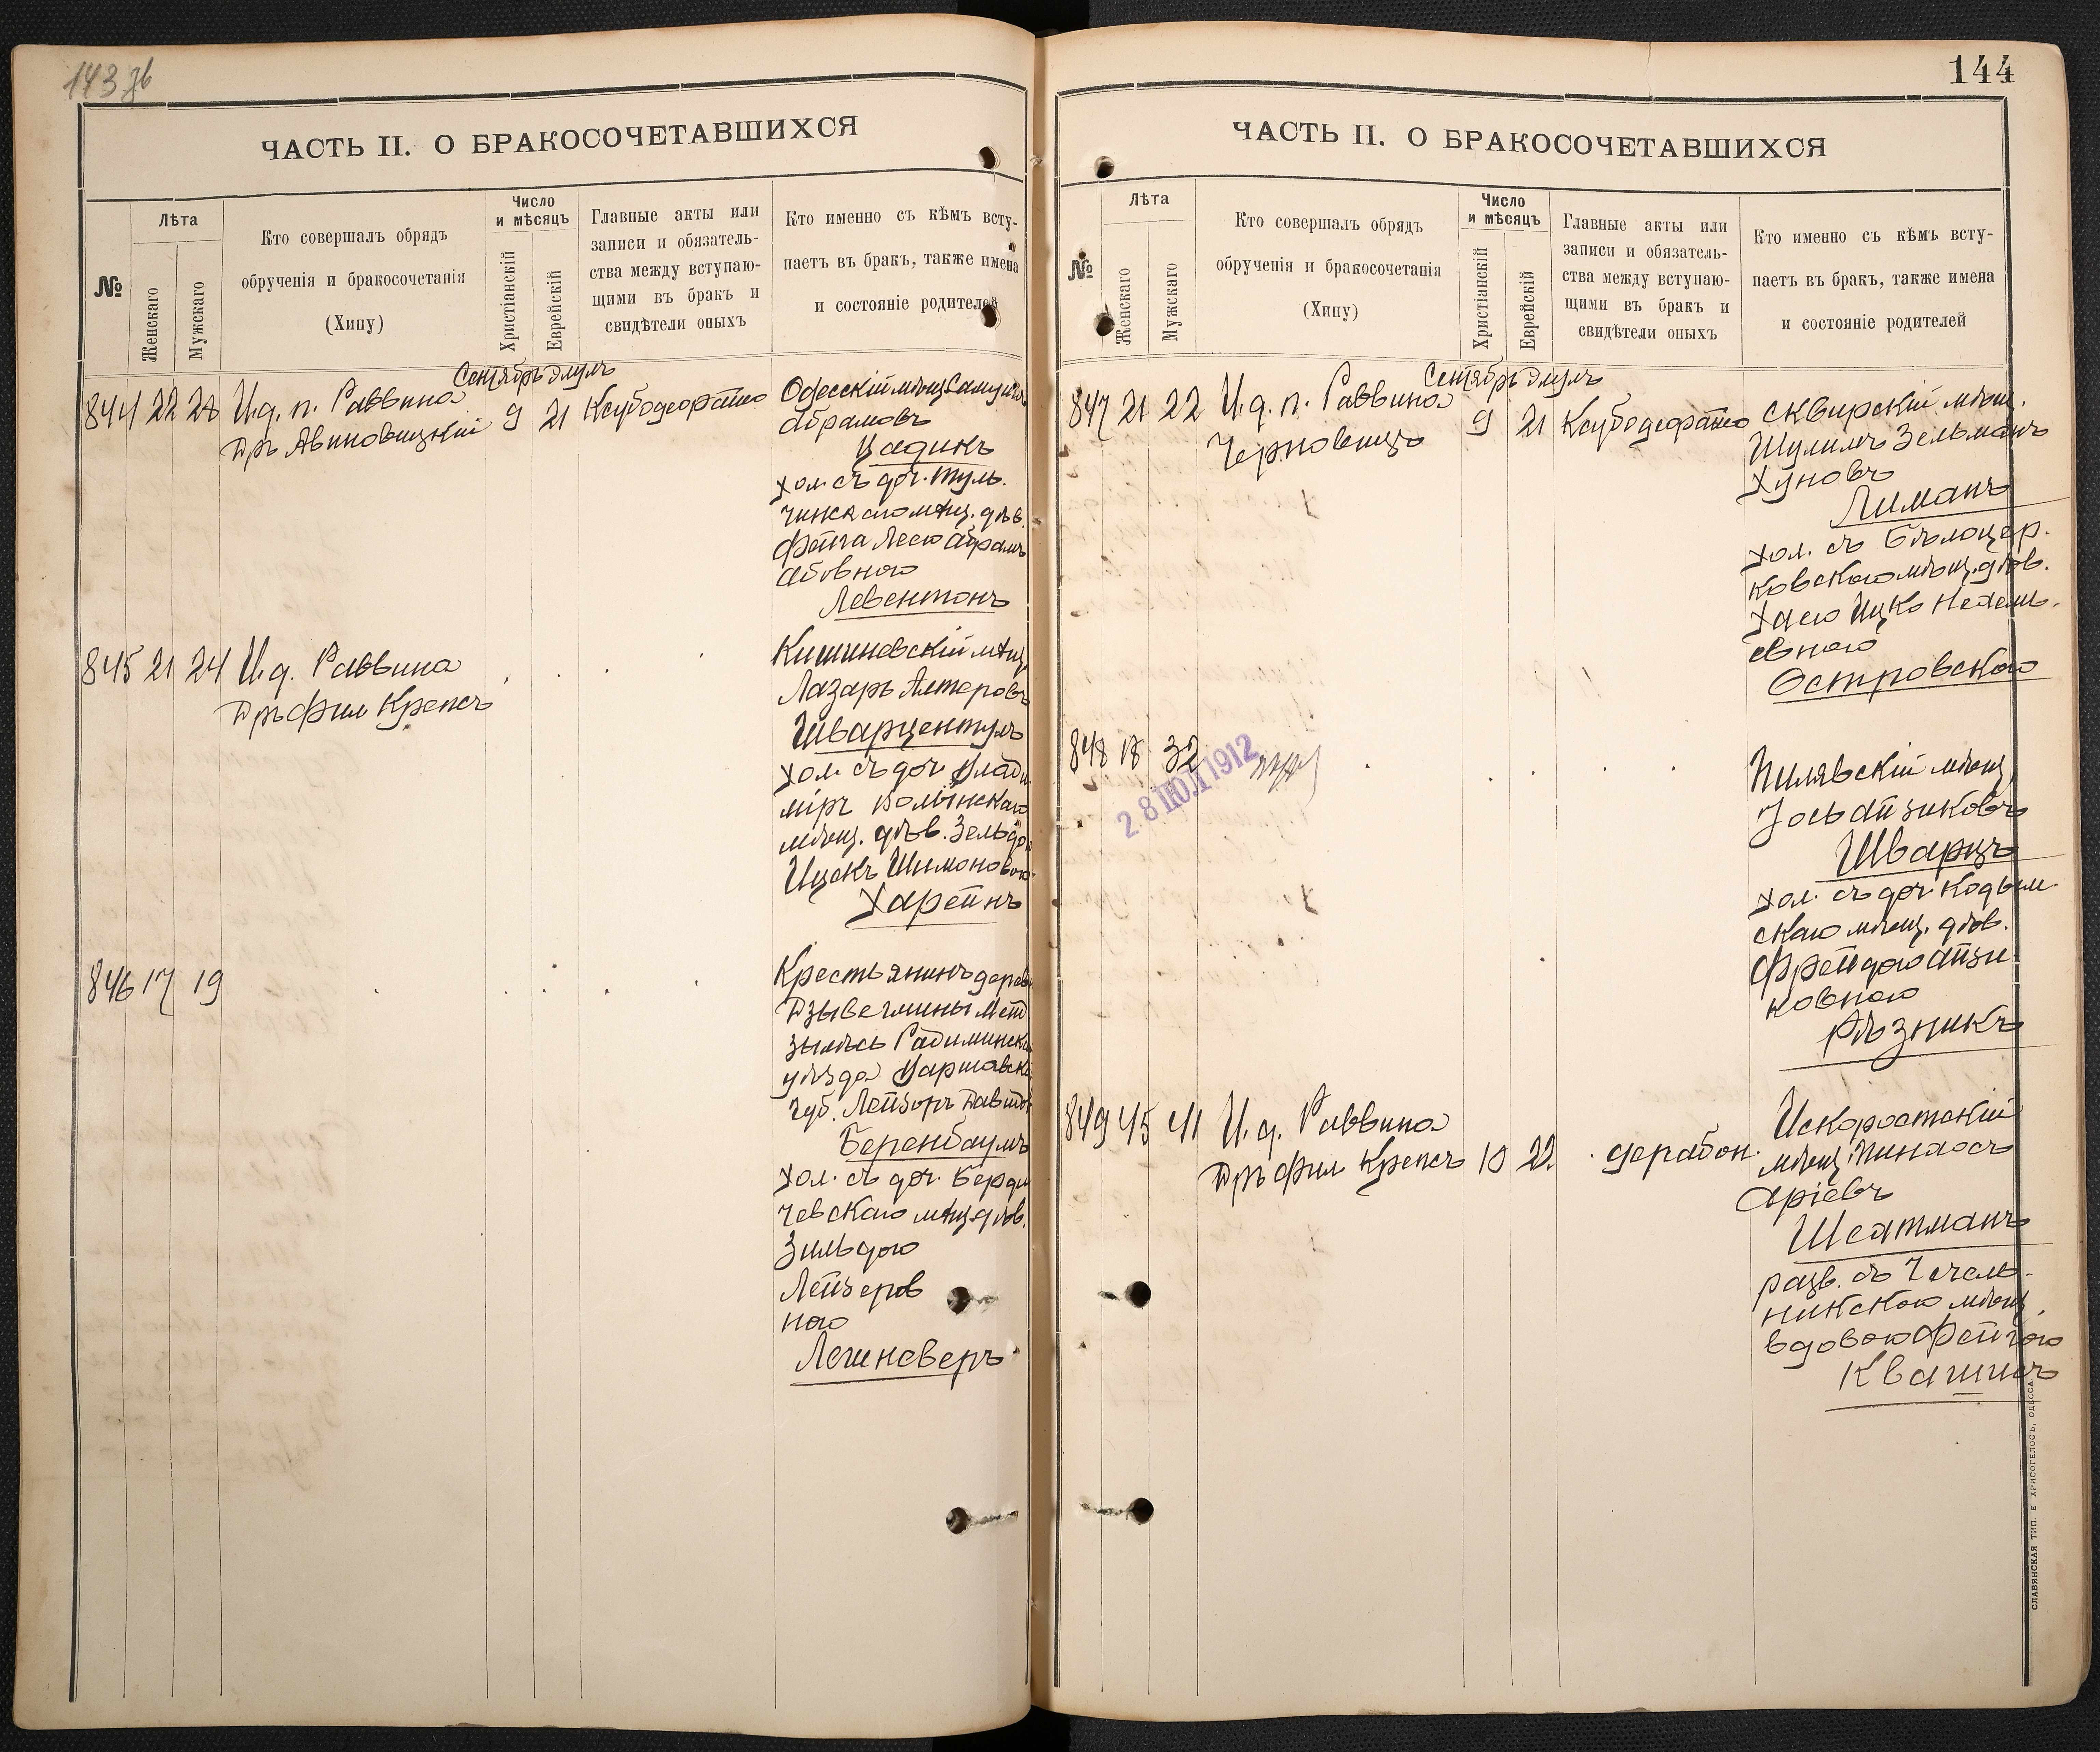 143 зв
ЧАСТЬ II. О БРАКОСОЧЕТАВШИХСЯ
№
Лѣта
Женскаго
Мужскаго
Кто совершалъ обрядъ
обрученія и бракосочетанія
(Хипу)
Число
и мѣсяцъ
Христіанскій
Еврейскій
Главные акты или
записи и обязатель-
ства между вступаю-
щими въ бракъ и
свидѣтели оныхъ
Кто именно съ кѣмъ всту-
паетъ въ бракъ, также имена
и состояніе родителей
Сентябрь Элулъ
844 22 28 И.д. п. Раввина
Дръ Авиновицкій
9 21
Одесскій мѣщ
Абрамовъ
Цадикъ
хол. съ доч. Туль-
чинскаго мѣщ. дѣв.
Левентонъ
845 21 24 И.д. Раввина
Дръ Фил Крепсъ
Кишиневскій мѣщ.
Лазарь Алтеровъ
Шварцентулъ
хол. съ доч. Влади
міръ Волынскаго
мѣщ. дѣв.
Ицекъ Шимоновою
Харейнъ
846 17 19
Крестьянинъ
Радиминска
уѣзда Варшавско
губ.
Беренбаумъ
хол. съ доч. Берди
чевскаго мѣщ. дѣв.
Зильдою
Лейзеров
ною
144
ЧАСТЬ II. О БРАКОСОЧЕТАВШИХСЯ
№
Лѣта
Женскаго
Мужскаго
Кто совершалъ обрядъ
обрученія и бракосочетанія
(Хипу)
Число
и мѣсяцъ
Христіанскій
Еврейскій
Главные акты или
записи и обязатель-
ства между вступаю-
щими въ бракъ и
свидѣтели оныхъ
Кто именно съ кѣмъ всту-
паетъ въ бракъ, также имена
и состояніе родителей
Сентябрь Элулъ
847 21 22 И.д. п. Раввина
Черновицъ
9 21
Сквирскій мѣщ.
Шулимъ Зельманъ
Хуновъ
Лиманъ
хол. съ Бѣлоцер-
ковскаго мѣщ. дѣв.
Хаею Ицко
Островскою
848 18 32
28 ІЮЛ 1912
Пилявскій мѣщ
Іось Айзиковъ
Шварцъ
хол. съ доч. Кодым-
скаго мѣщ. дѣв.
Фрейдою Айзи-
ковною
Рѣзникъ
849 45 41 И.д. Раввина
Дръ Фил Крепсъ 10 22 дерабон.
Искоростскій
мѣщ. Пинхосъ
Аріевъ
разв. съ Чечель-
никскою мѣщ.
вдовою Фейгою
СЛАВЯНСКАЯ ТИП. Е ХРИСОГЕЛОСЪ, ОДЕССА.